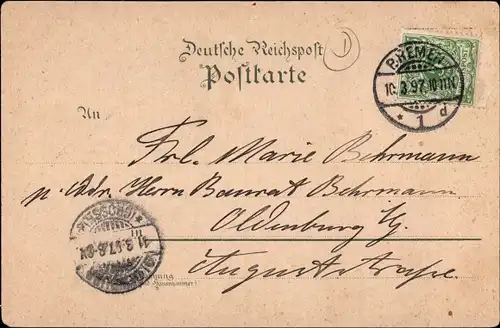 Deutsche Reichspost
Postkarte
BREMEN
10.3.97.10-11N
* 1 d
An
Frl. Marie Behrmann
p. Adr. Herrn Baurat Behrmann.
Oldenburg i/G.
Auguststrasse.
11.3.97.6-8V